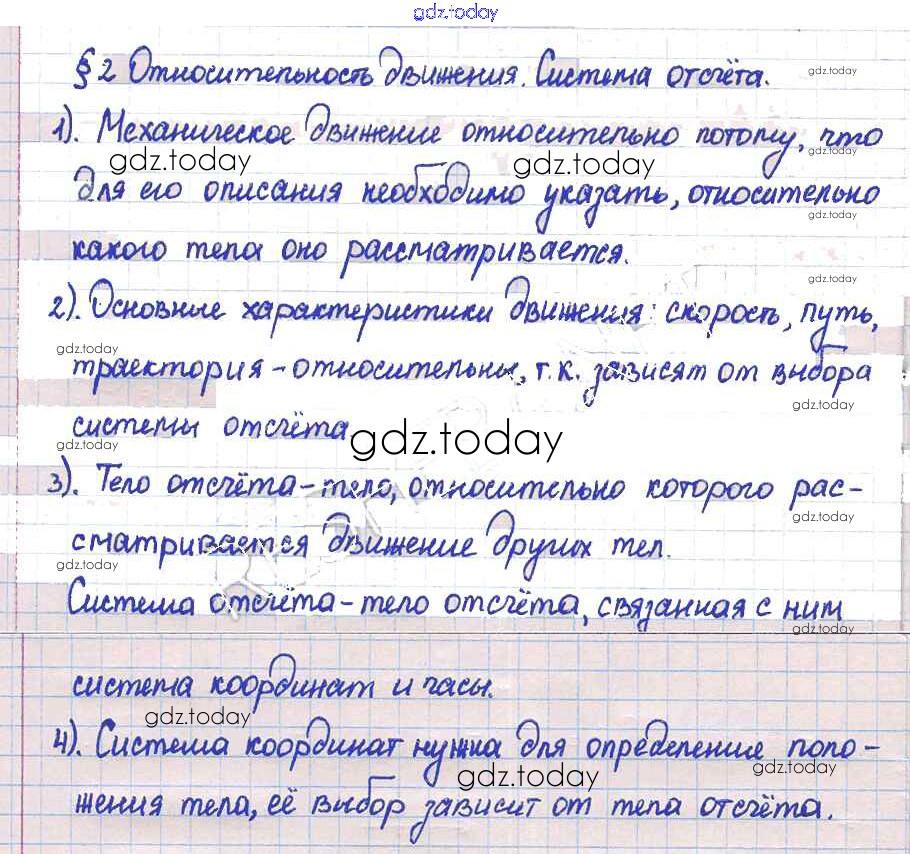 gdz.today
§2 Относительность движения. Система отсчёта.
gdz.today
1). Механическое движение относительно потому, что
gdz.today
gdz.today gdz.today
для его описания необходимо указать, относительно
gdz.today
какого тела оно рассматривается.
gdz.today
2). Основные характеристики движения: скорость, путь,
gdz.today
gdz.today
траектория - относительны, т.к. зависят от выбора
gdz.today
системы отсчёта
gdz.today
gdz.today
3). Тело отсчёта - тело, относительно которого рас-
gdz.today
сматривается движение других тел.
gdz.today
Система отсчёта - тело отсчёта, связанная с ним
gdz.today
система координат и часы.
gdz.today
4). Система координат нужна для определение поло-
gdz.today
gdz.today
жения тела, её выбор зависит от тела отсчёта.